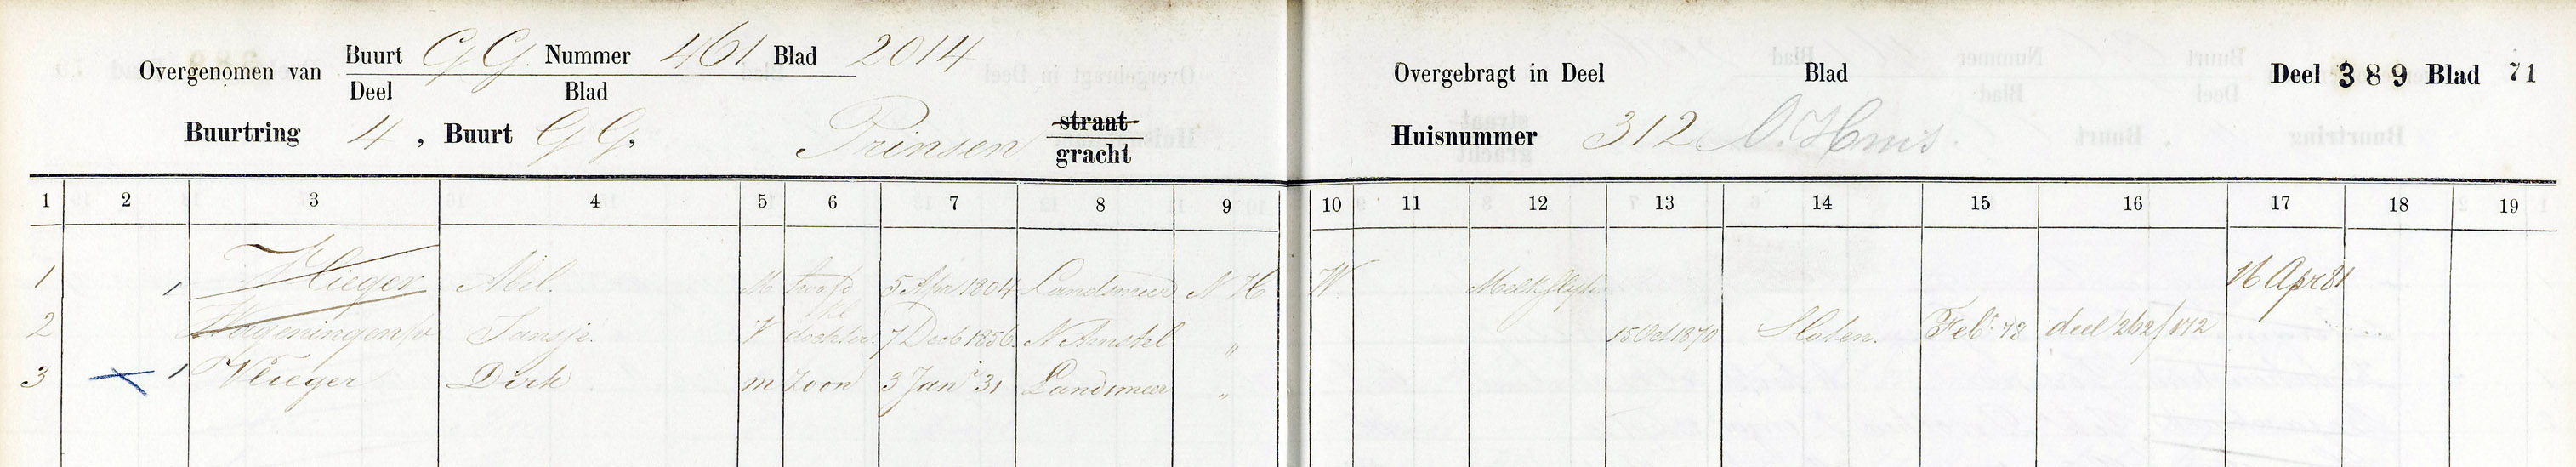 Overgenomen van Buurt GG. Nummer 461 Blad 2014
Deel Blad
Buurtring 4, Buurt GG. Prinsen straat gracht
Overgebragt in Deel Blad Deel 389 Blad 71
Huisnummer 312 A. Huis.
1 2 3 4 5 6 7 8 9 10 11 12 13 14 15 16 17 18 19
1 1 Vlieger. Abel. M hoofd 5 Apr 1804 Landsmeer N H W 16 Apr 81
2 Wageningen/v Jansje. V dochter. 7 Decb 1856. N Amstel " 15 Oct 1870 Sloten. Feb. 78 deel 262/172
3 1 Vlieger Dirk m Zoon 3 Jan 31 Landsmeer "